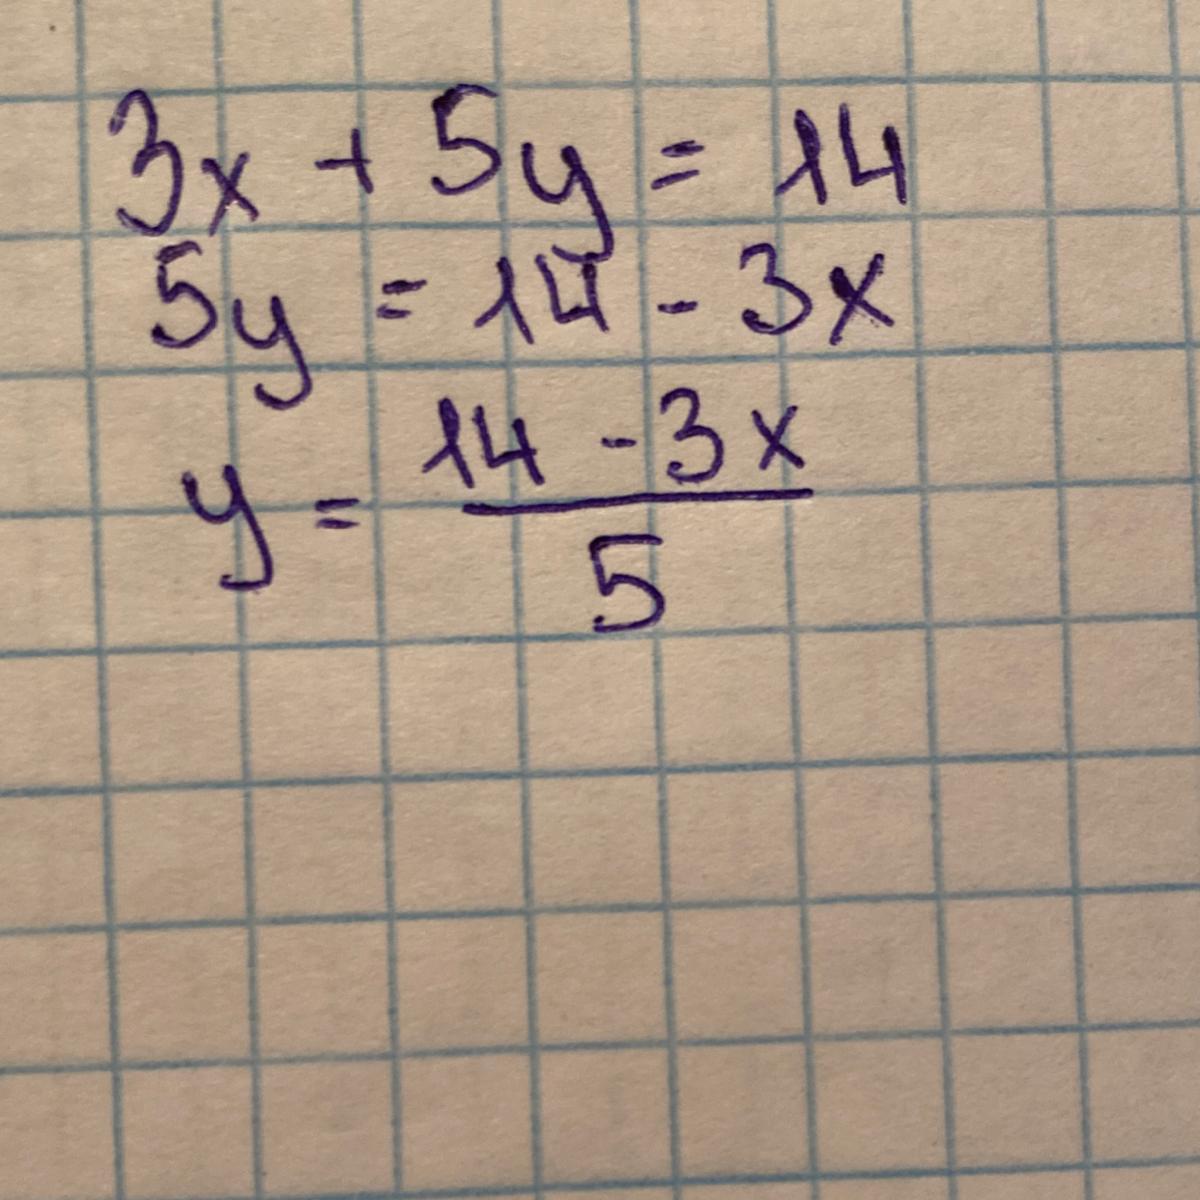 3x + 5y = 14
5y = 14 - 3x
y = \frac{14 - 3x}{5}